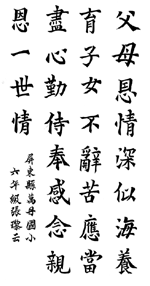 父母恩情深似海養
育子女不辭苦應當
盡心勤侍奉感念親
恩一世情
屏東縣萬丹國小
六年級張云